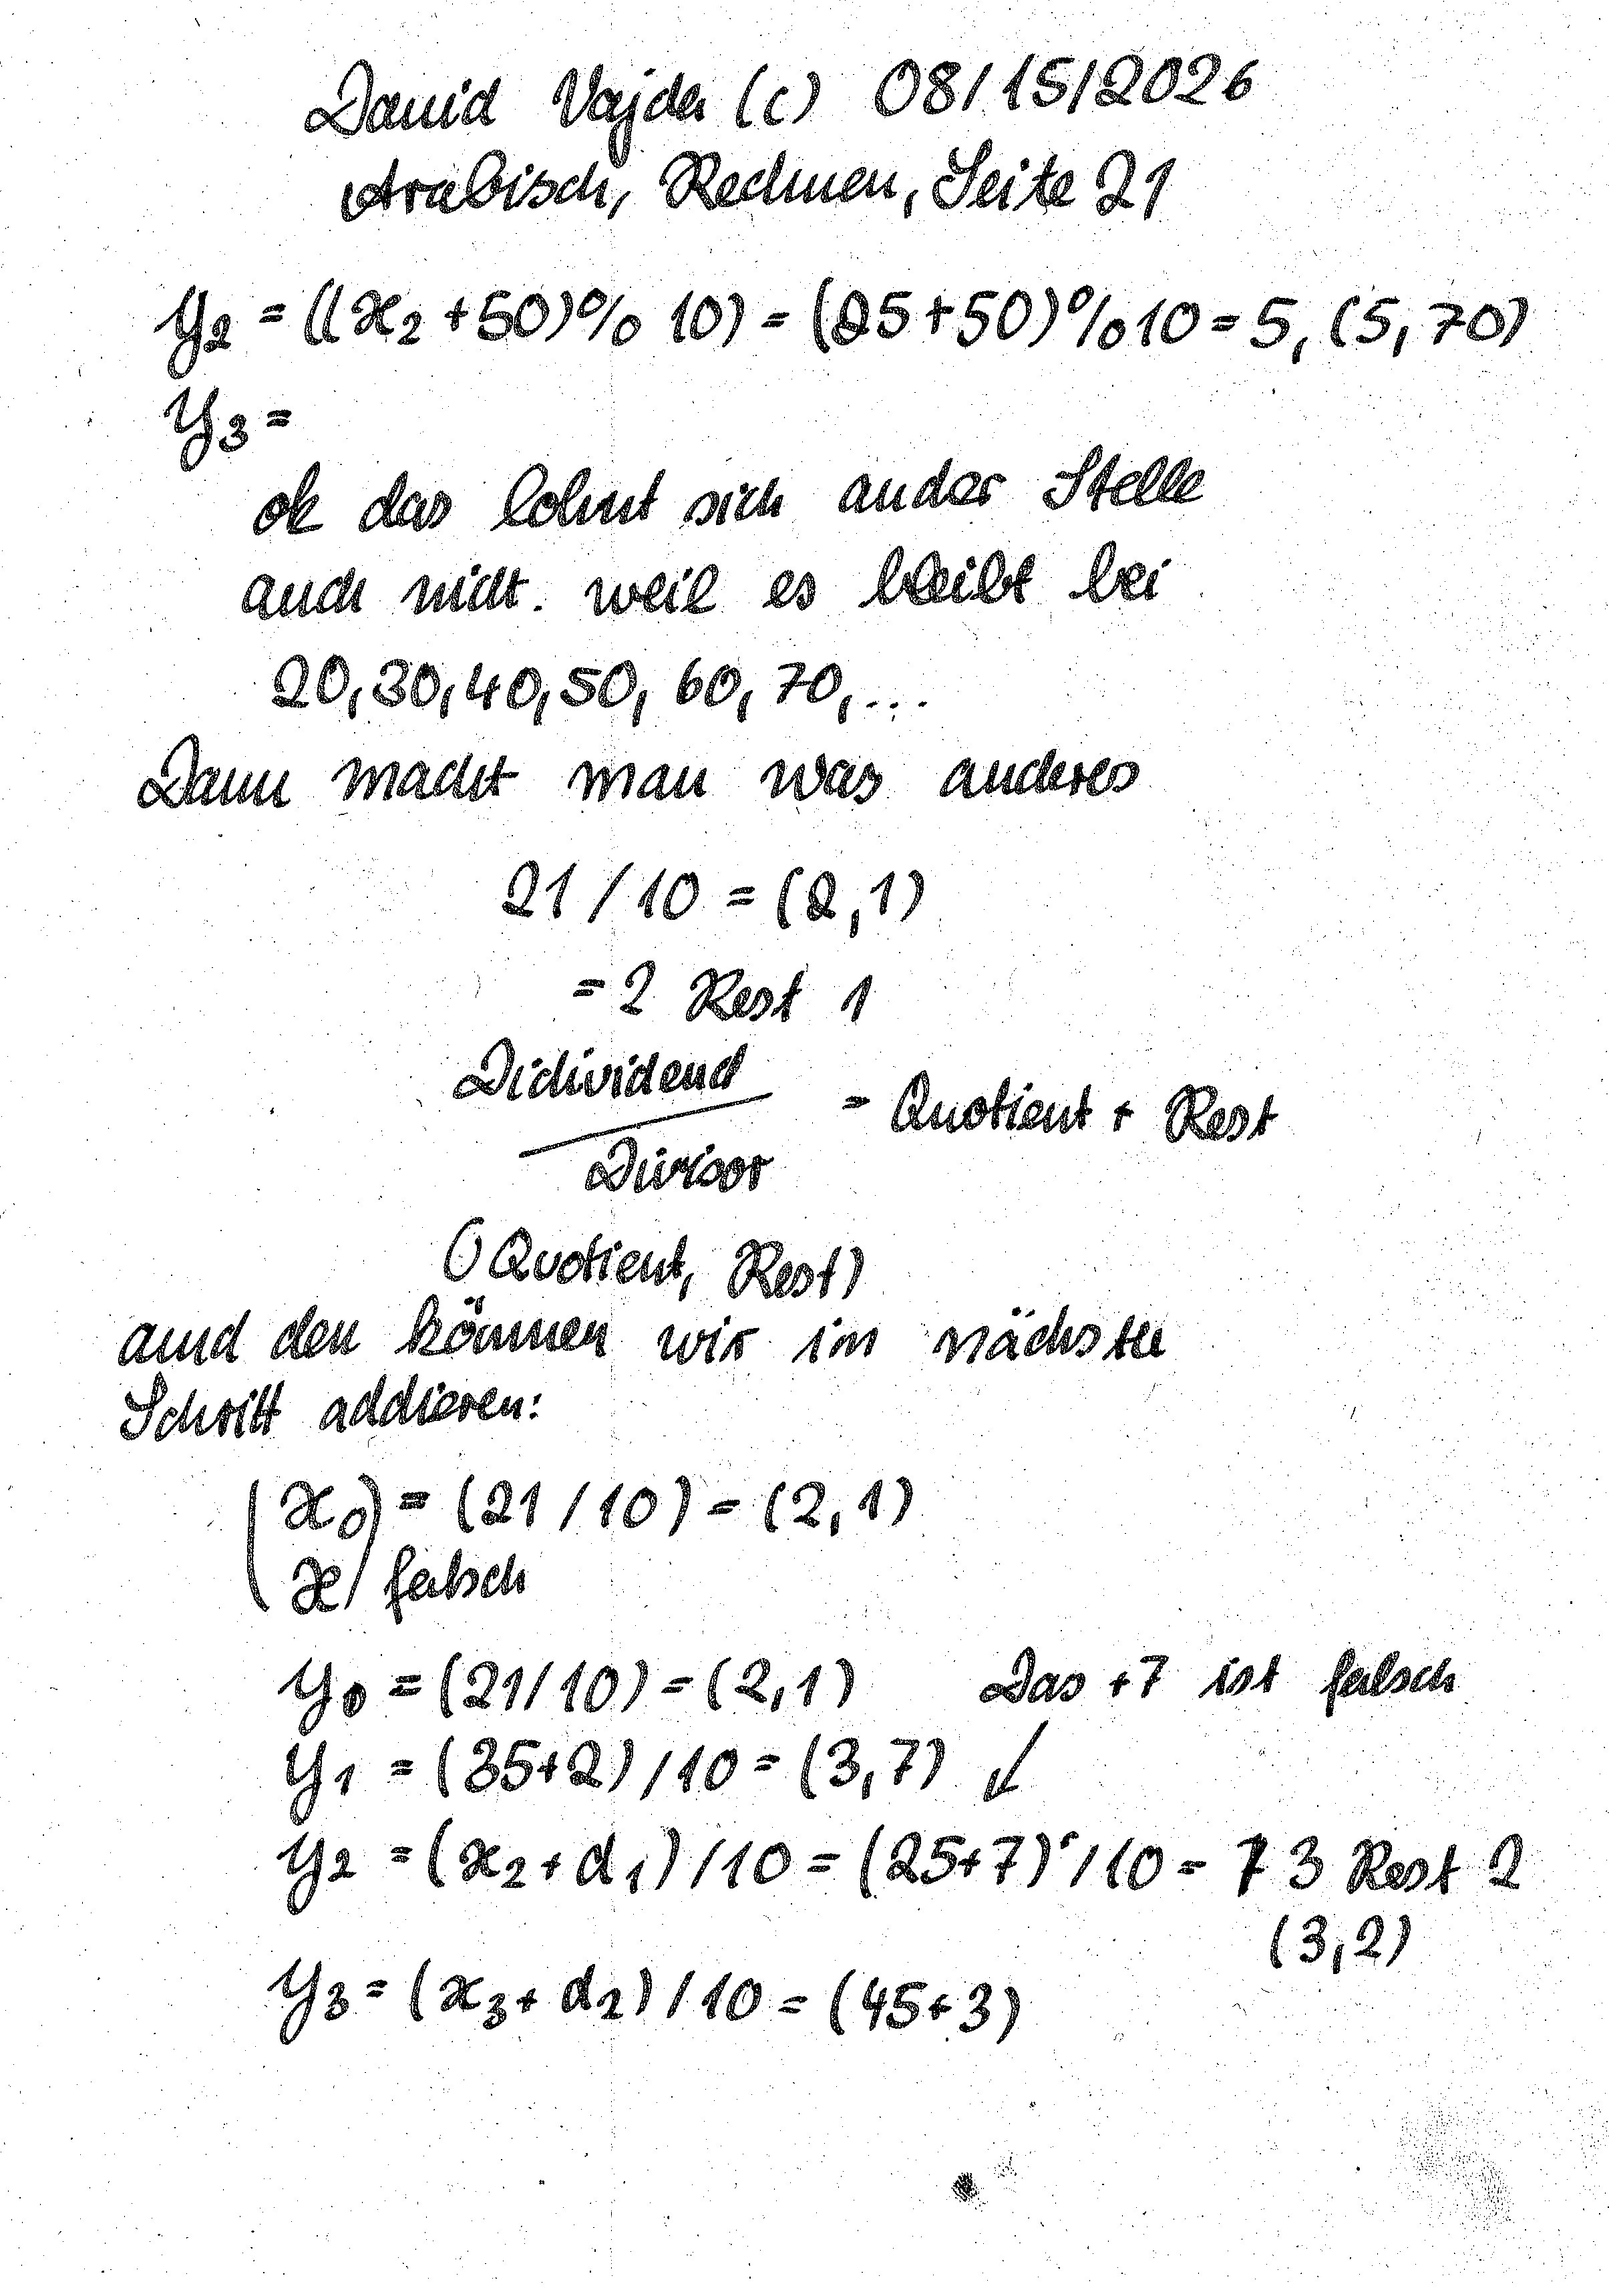 David Vajda (c) 08/15/2026
Arabisch, Rechnen, Seite 21
y2 = ((x2 + 50)% 10) = (25+50)%10 = 5, (5, 70)
y3 =
ok das lohnt sich ander Stelle
auch nicht. weil es bleibt bei
20, 30, 40, 50, 60, 70, ...
Dann macht man was anderes
21 / 10 = (2, 1)
= 2 Rest 1
Didividend
= Quotient + Rest
Divisor
(Quotient, Rest)
amd den können wir im nächste
Schritt addieren:
(x0) = (21 / 10) = (2, 1)
x falsch
y0 = (21/10) = (2, 1) Das +7 ist falsch
y1 = (35+2) / 10 = (3, 7) ↙
y2 = (x2 + d1) / 10 = (25+7) / 10 = 7 3 Rest 2
(3, 2)
y3 = (x3 + d2) / 10 = (45+3)